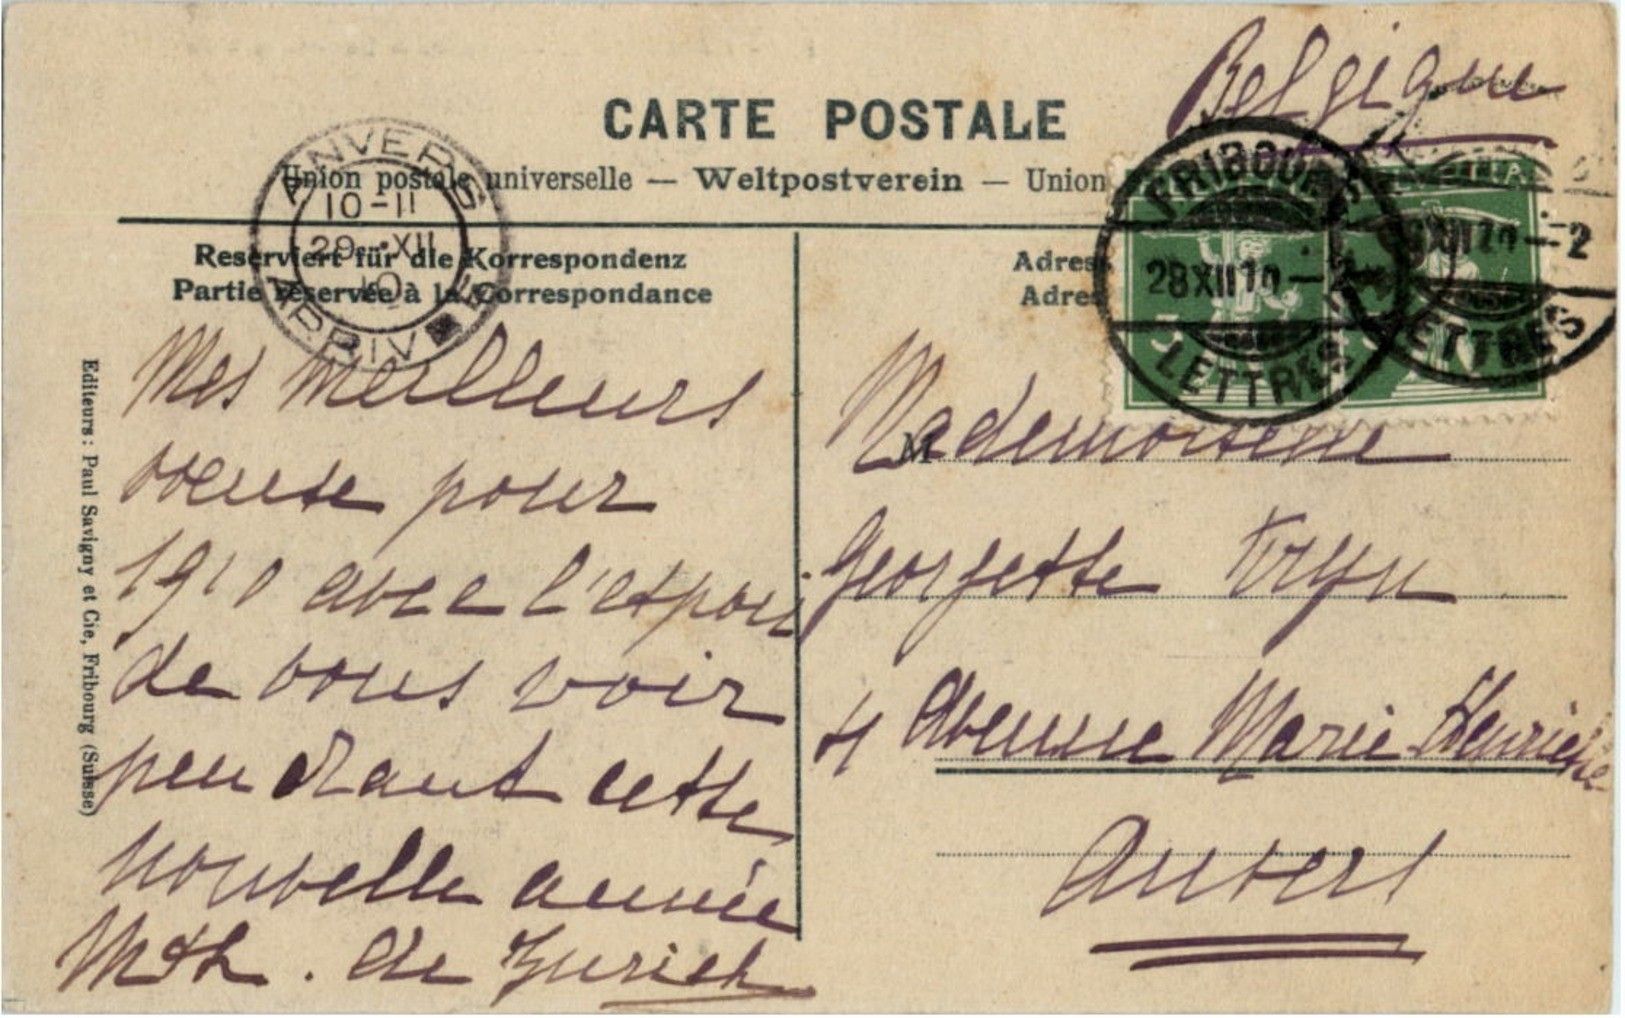 Belgique
CARTE POSTALE
Union postale universelle — Weltpostverein — Union
ANVERS
10-11
29 XII
10
ARRIVÉE
FRIBOURG
28 XII 10 — 2
LETTRES
XII 10 — 2
LETTRES
5
Reserviert für die Korrespondenz
Partie réservée à la Correspondance
Adres
Adres
Editeurs: Paul Savigny et Cie, Fribourg (Suisse)
Mes meilleurs
voeuse pour
1910 avec l'espoir
de vous voir
pendant cette
nouvelle année
Mth. de Zurich
M
Mademoiselle
Georgette
4 Avenue Marie Henriette
Anvers